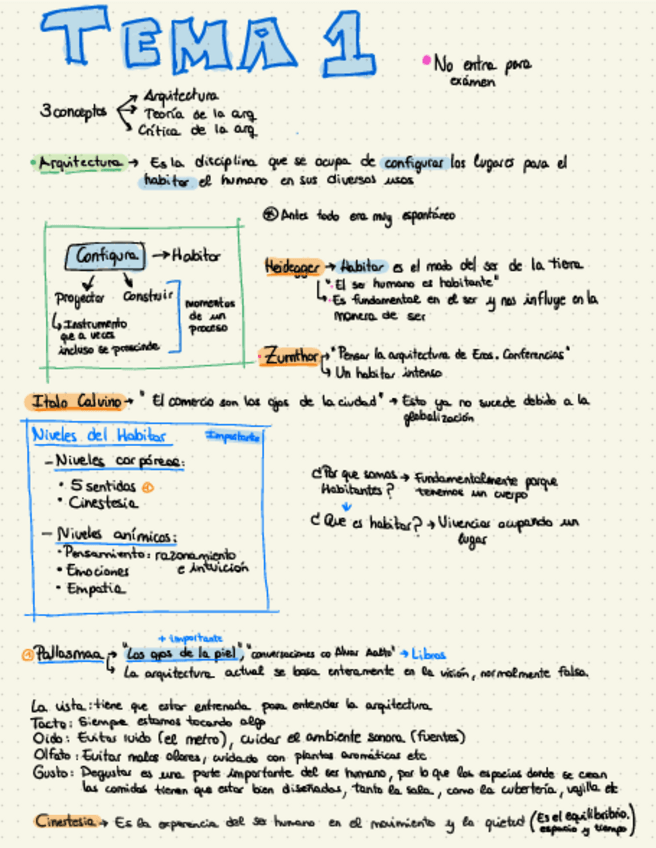 TEMA 1
• No entra para
exámen
3 conceptos → Arquitectura
→ Teoría de la arq
→ Crítica de la arq
• Arquitectura → Es la disciplina que se ocupa de configurar los lugares para el
habitar el humano en sus diversos usos
* Antes todo era muy espontáneo
Configura → Habitar
Proyectar Construir
↳ Instrumento
que a veces
incluso se prescinde
momentos
de un
proceso
Heidegger → Habitar es el modo del ser de la tierra
• "El ser humano es habitante"
↳ • Es fundamental en el ser y nos influye en la
manera de ser
• Zumthor → "Pensar la arquitectura de Eros. Conferencias"
↳ Un habitar intenso
Italo Calvino → "El comercio son los ojos de la ciudad" → Esto ya no sucede debido a la
globalización
Niveles del Habitar Importante
- Niveles corpóreos:
• 5 sentidos
• Cinestesia
- Niveles anímicos:
• Pensamiento: razonamiento
e intuición
• Emociones
• Empatia
¿Por que somos → Fundamentalmente porque
Habitantes? tenemos un cuerpo
¿Que es habitar? → Vivencias ocupando un
lugar
+ importante
Pallasmaa → "Los ojos de la piel", "conversaciones co Alvar Aalto" → Libros
↳ La arquitectura actual se basa enteramente en la visión, normalmente falsa.
La vista: tiene que estar entrenada para entender la arquitectura
Tacto: Siempre estamos tocando algo
Oido: Evitar ruido (el metro), cuidar el ambiente sonora (fuentes)
Olfato: Evitar malos olores, cuidado con plantas aromáticas etc
Gusto: Degustar es una parte importante del ser humano, por lo que los espacios donde se crean
las comidas tienen que estar bien diseñadas, tanto la sala, como la cubertería, vajilla etc
Cinestesia → Es la experencia del ser humano en el movimiento y la quietud (Es el equilibribio.
espacio y tiempo)